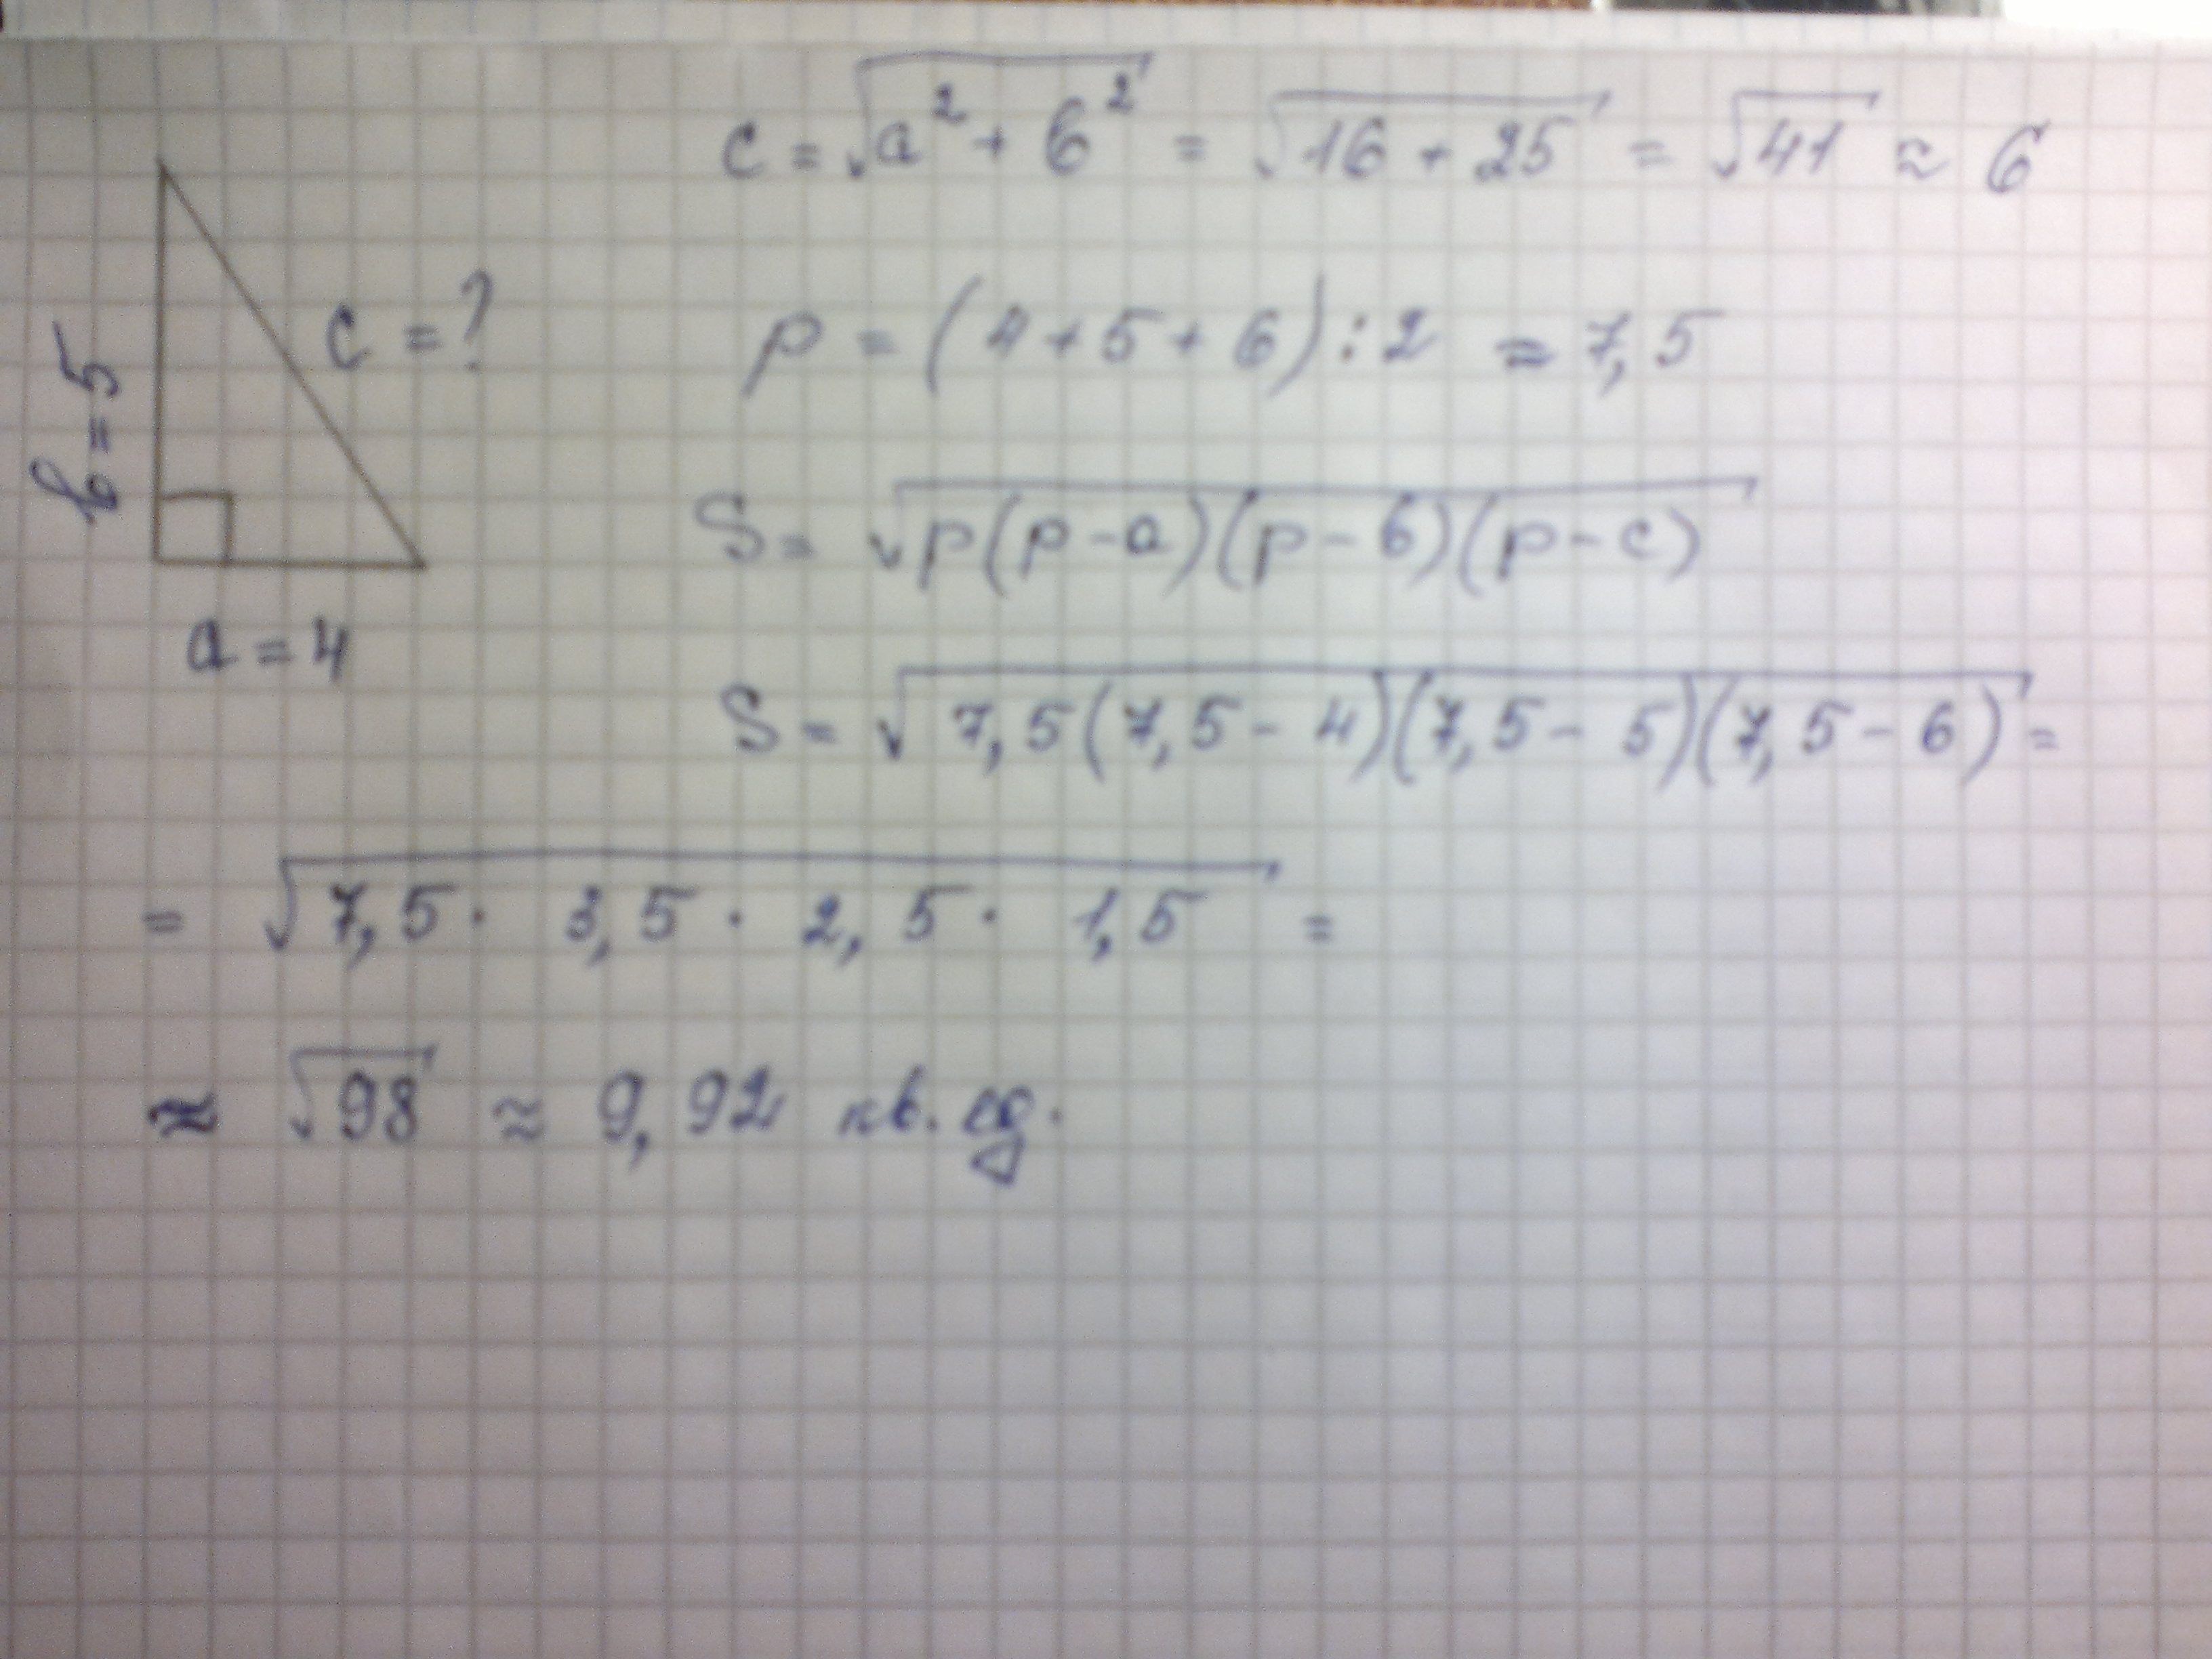 c = √(a² + b²) = √(16 + 25) = √41 ≈ 6
c = ?
b = 5
a = 4
p = (4 + 5 + 6) : 2 = 7,5
S = √(p(p - a)(p - b)(p - c))
S = √(7,5(7,5 - 4)(7,5 - 5)(7,5 - 6)) =
= √(7,5 · 3,5 · 2,5 · 1,5) =
≈ √98 ≈ 9,92 кв. ед.